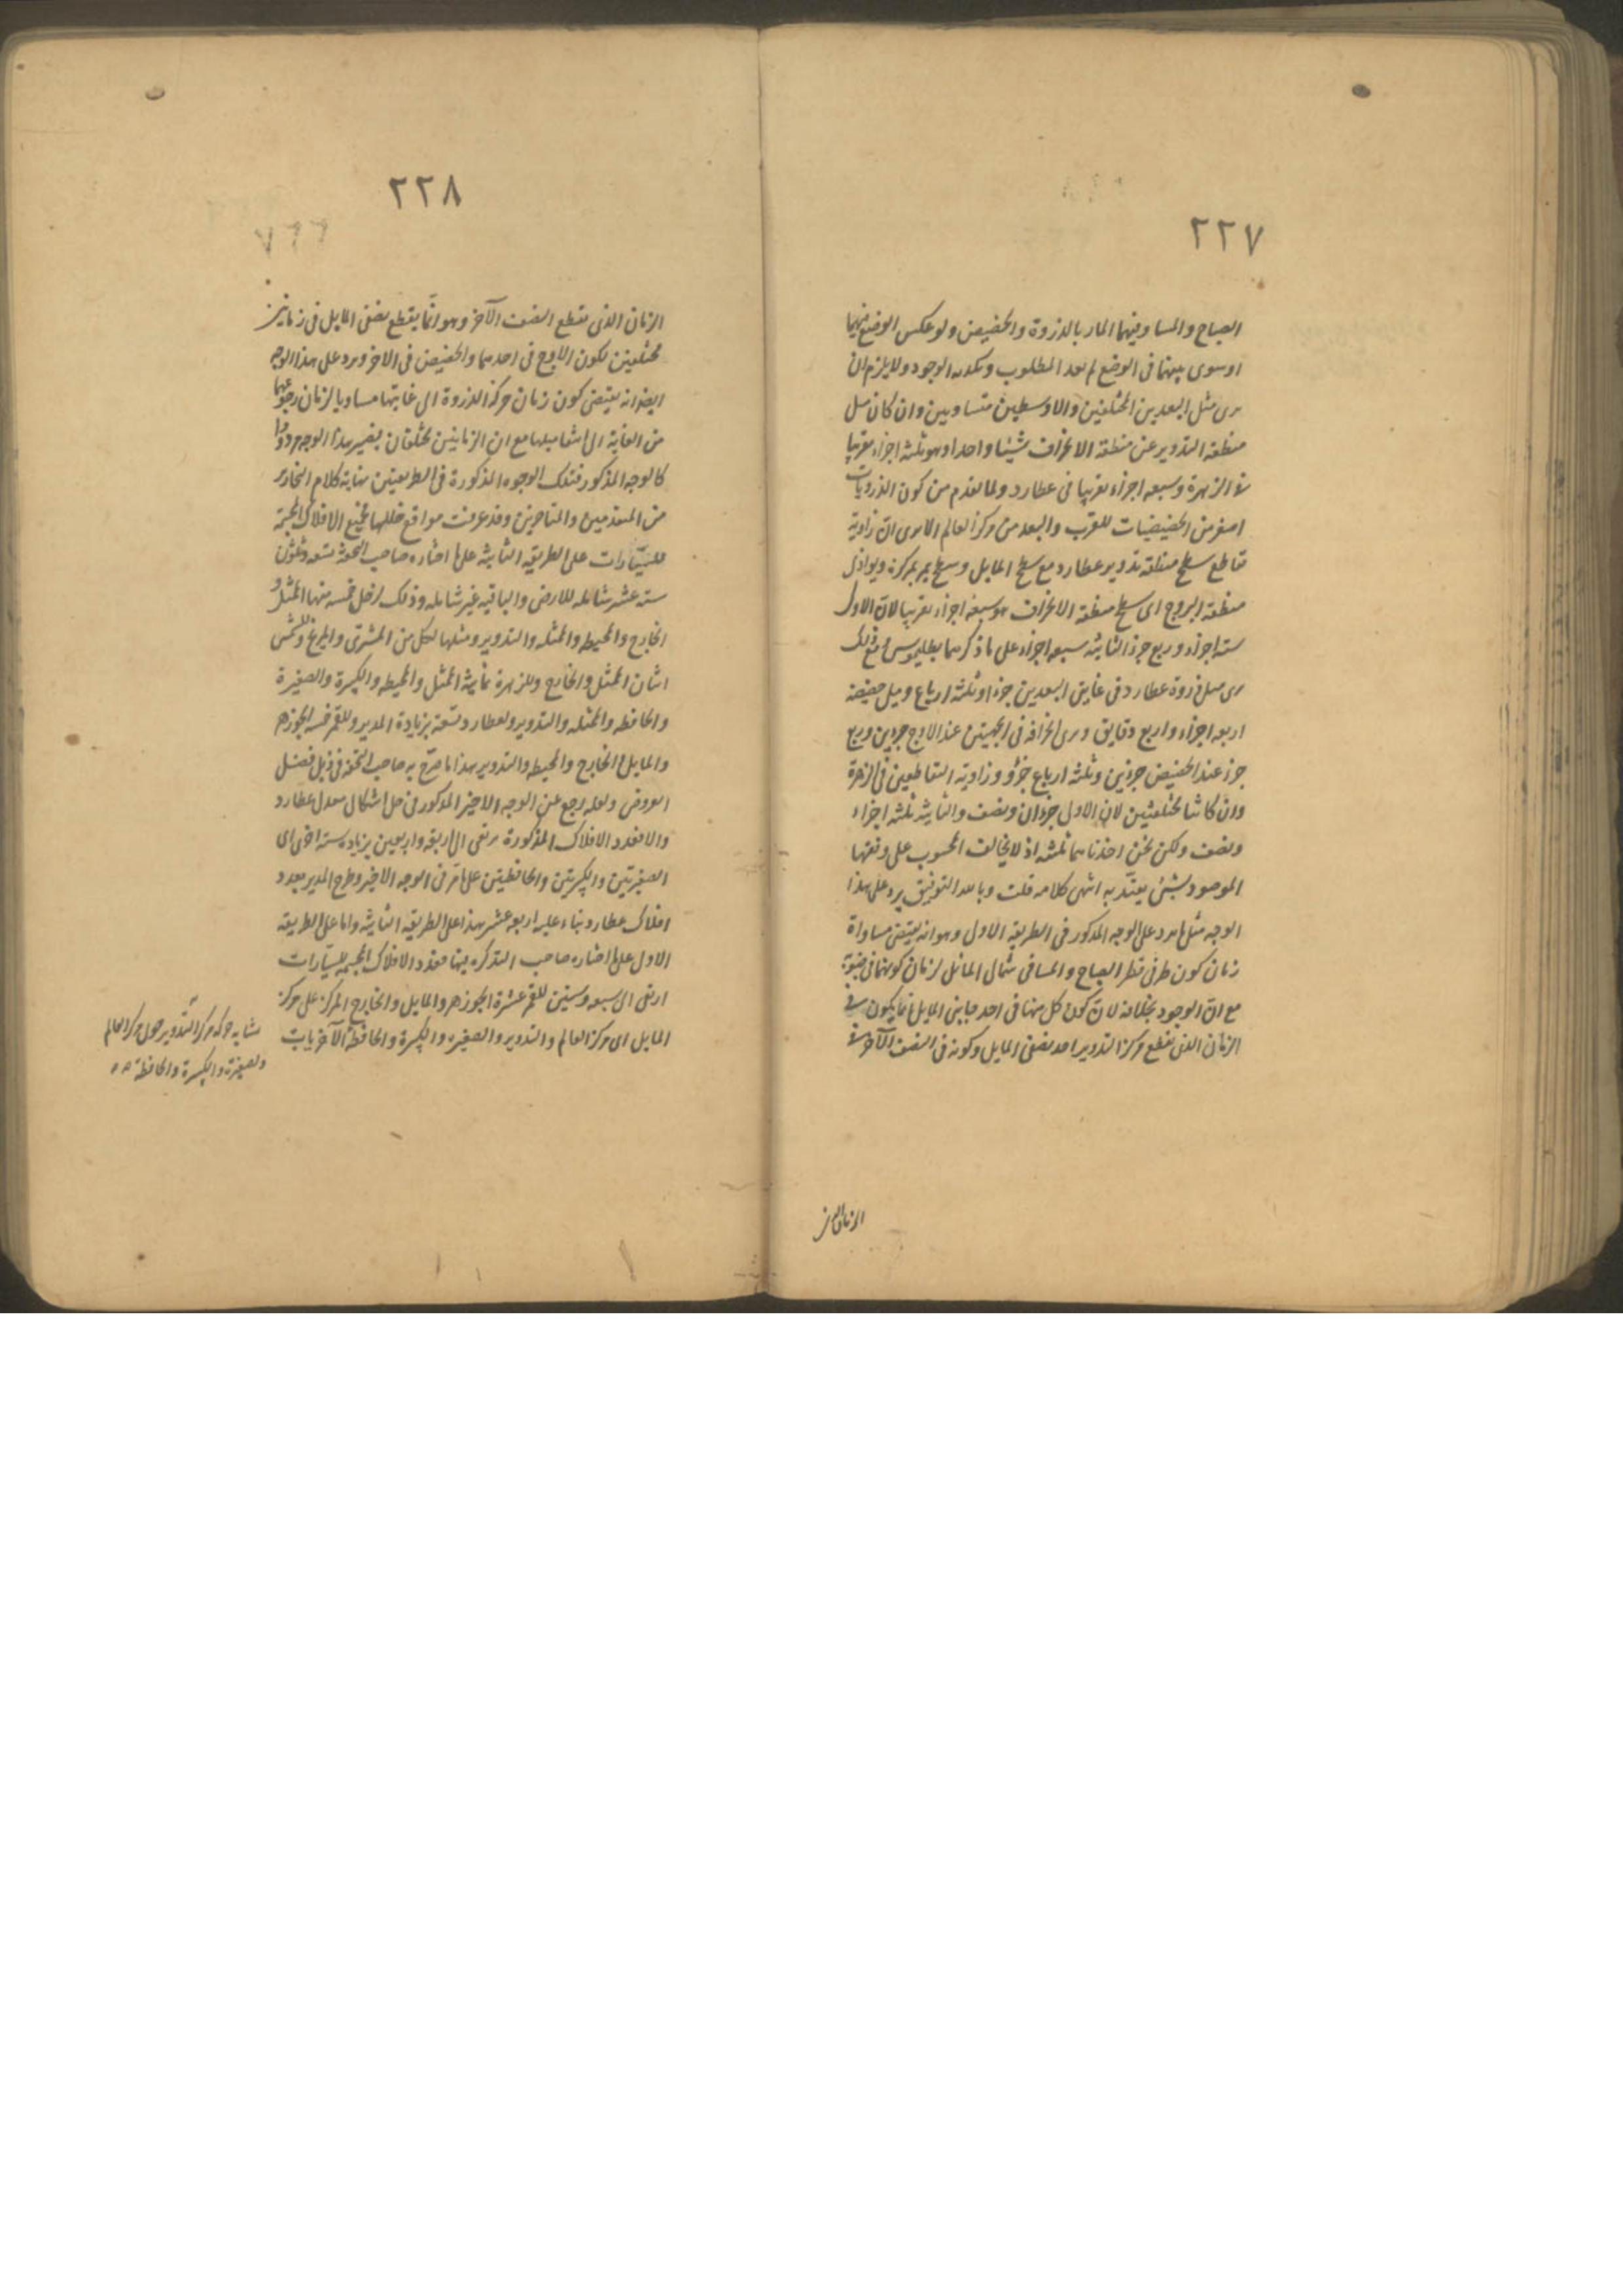 ٢٢٧
الصباح والمسا وبينهما المار بالذروة والحضيض ولو عكس الوضع فيهما
او سوى بينهما فى الوضع لم يعد المطلوب وىكذبه الوجود ولا يلزم ان
يرى مثل البعدين المختلفين والاوسطين متساويين وان كان ميل
منطقة التدوير عن منطقة الانحراف شيئا واحدا وهو ثلثة اجزاء تقريبا
فى الزهرة وسبعه اجزاء تقريبا فى عطارد ولما تقدم من كون الذرويات
اصغر من الحضيضيات للقرب والبعد من مركز العالم الا يرى ان زاوية
تقاطع سطح منطقة تدوير عطارد مع سطح المايل وسطح يمر بمركزه ويوازى
منطقة البروج اى سطح منطقة الانحراف هو سبعة اجزاء تقريبا لان الاول
ستة اجزاء وربع جزء الثانية سبعه اجزاء على ما ذكرهما بطليموس ومع ذلك
يرى ميل ذروة عطارد فى غايتى البعدين جزءا وثلثه ارباع وميل حضيضه
اربعه اجزاء واربع دقايق ويرى انحرافه فى الجهتين عند الاوج جزءين وربع
جزء عند الحضيض جزءين وثلثه ارباع جزؤ وزاوية التقاطعين فى الزهرة
وان كانتا مختلفتين لان الاولى جزءان ونصف والثانية ثلثه اجزاء
ونصف ولكن نحن اخذناهما ثلثه اذ لا يخالف المحسوب على وفقها
الموصود بشئ يعتد به انتهى كلامه قلت وبالله التوفيق يرد على هذا
الوجه مثل ما يرد على الوجه المذكور فى الطريقه الاول وهو انه يقتضى مساواة
زمان كون طرفى قطر الصباح والمسا فى شمال المائل لزمان كونهما فى جنوبه
مع ان الوجود بخلافه لان كون كل منهما فى احد جانبى المايل انما يكون فى
الزمان الذى يقطع مركز التدوير احد نصفى المايل وكونه فى النصف الآخر فى
الزمان الذى
٢٢٨
الزمان الذى يقطع النصف الآخر وهو انما يقطع نصفى المايل فى زمانين
مختلفين لكون الاوج فى احدهما والحضيض فى الاخر ويرد على هذا الوجه
ايضا انه يقتضى كون زمان حركة الذروة الى غايتها مساويا لزمان رجوعهما
من الغاية الى مقابلها مع ان الزمانين مختلفان فيصير هذا الوجه مردودا
كالوجه المذكور فتلك الوجوه المذكورة فى الطريقتين نهاية كلام
من المتقدمين والمتاخرين وقد عرفت مواقع خللها فجميع الافلاك المجسمة
للسيارات على الطريقه الثانيه على ما اختاره صاحب التحفة تسعه وثلثون
سته عشر شامله للارض والباقيه غير شامله وذلك لزحل خمسه منها الممثل و
الخارج والمحيطه والممثله والتدوير ومثلها لكل من المشترى والمريخ وللشمس
اثنان الممثل والخارج وللزهرة ثمانية الممثل والمحيطه والكبيرة والصغيرة
والحافظه والممثله والتدوير ولعطارد تسعة بزيادة المدير وللقمر خمسه الجوزهر
والمايل والخارج والمحيطه والتدوير هذا ما صرح به صاحب التحفه فى ذيل فصل
العروض ولعله رجع عن الوجه الاخير المذكور فى حل اشكال معدل عطارد
والا فعدد الافلاك المذكورة يرتقى الى اربعة واربعين بزياده سته اخرى اى
الصغيرتين والكبيرتين والحافظتين على ما مر فى الوجه الاخير وطرح المدير بعدد
افلاك عطارد بناء عليه اربعه عشر هذا على الطريقه الثانيه واما على الطريقه
الاولى على ما اختاره صاحب التذكره فيها فعدد الافلاك المجسمه للسيارات
ارتقى الى سبعه وستين للقمر عشرة الجوزهر والمايل والخارج المركز على مركز
المايل اى مركز العالم والتدوير والصغيره والكبيرة والحافظه الآخريات
تشابه حركة مركز التدوير حول مركز العالم
والصغيرة والكبيرة والحافظة